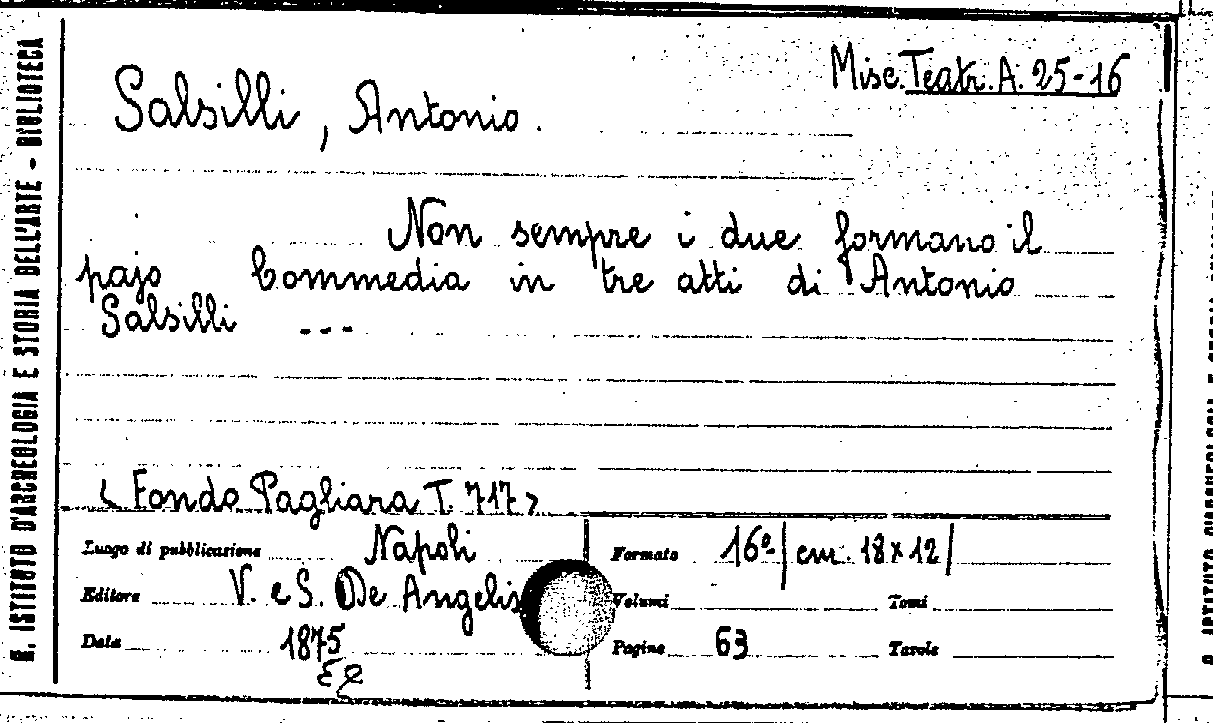 R. ISTITUTO D'ARCHEOLOGIA E STORIA DELL'ARTE - BIBLIOTECA
Misc. Teatr. A. 25-16
Salsilli, Antonio.
Non sempre i due formano il
pajo Commedia in tre atti di Antonio
Salsilli ---
< Fondo Pagliara T. 717 >
Luogo di pubblicazione Napoli
Editore V. e S. De Angelis
Data 1875
Formato 16º | cm. 18x12 |
Volumi Tomi
Pagine 63 Tavole